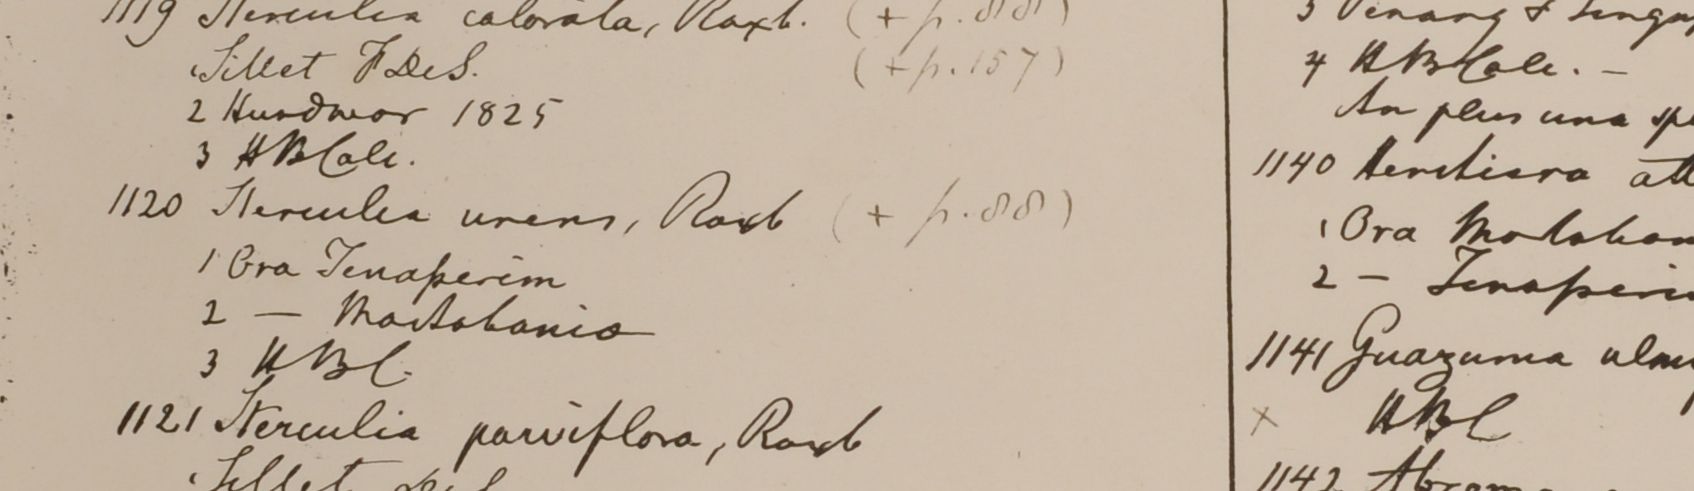 1119 Sterculia colorata, Roxb. (+ p. 88)
1 Sillet F DeS. (+ p. 157)
2 Hurdwar 1825
3 HBCalc.
1120 Sterculia urens, Roxb (+ p. 88)
1 Ora Tenaſserim
2 — Martabania
3 HBC.
1121 Sterculia parviflora, Roxb
Sillet DeS
3 Penang & Singap
4 HBCalc. —
An plus una spe
1140 Heritiera att
1 Ora Martaban
2 — Tenaſserim
1141 Guazuma ulm
x HBC
1142 Abroma